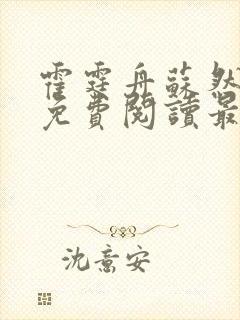 霍霆舟蘇然
免費閱讀最
沈意安